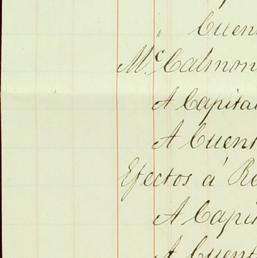 " Cuen
Mc Calmon
A Capital
A Cuent
Efectos á Re
A Capit
A Cuent